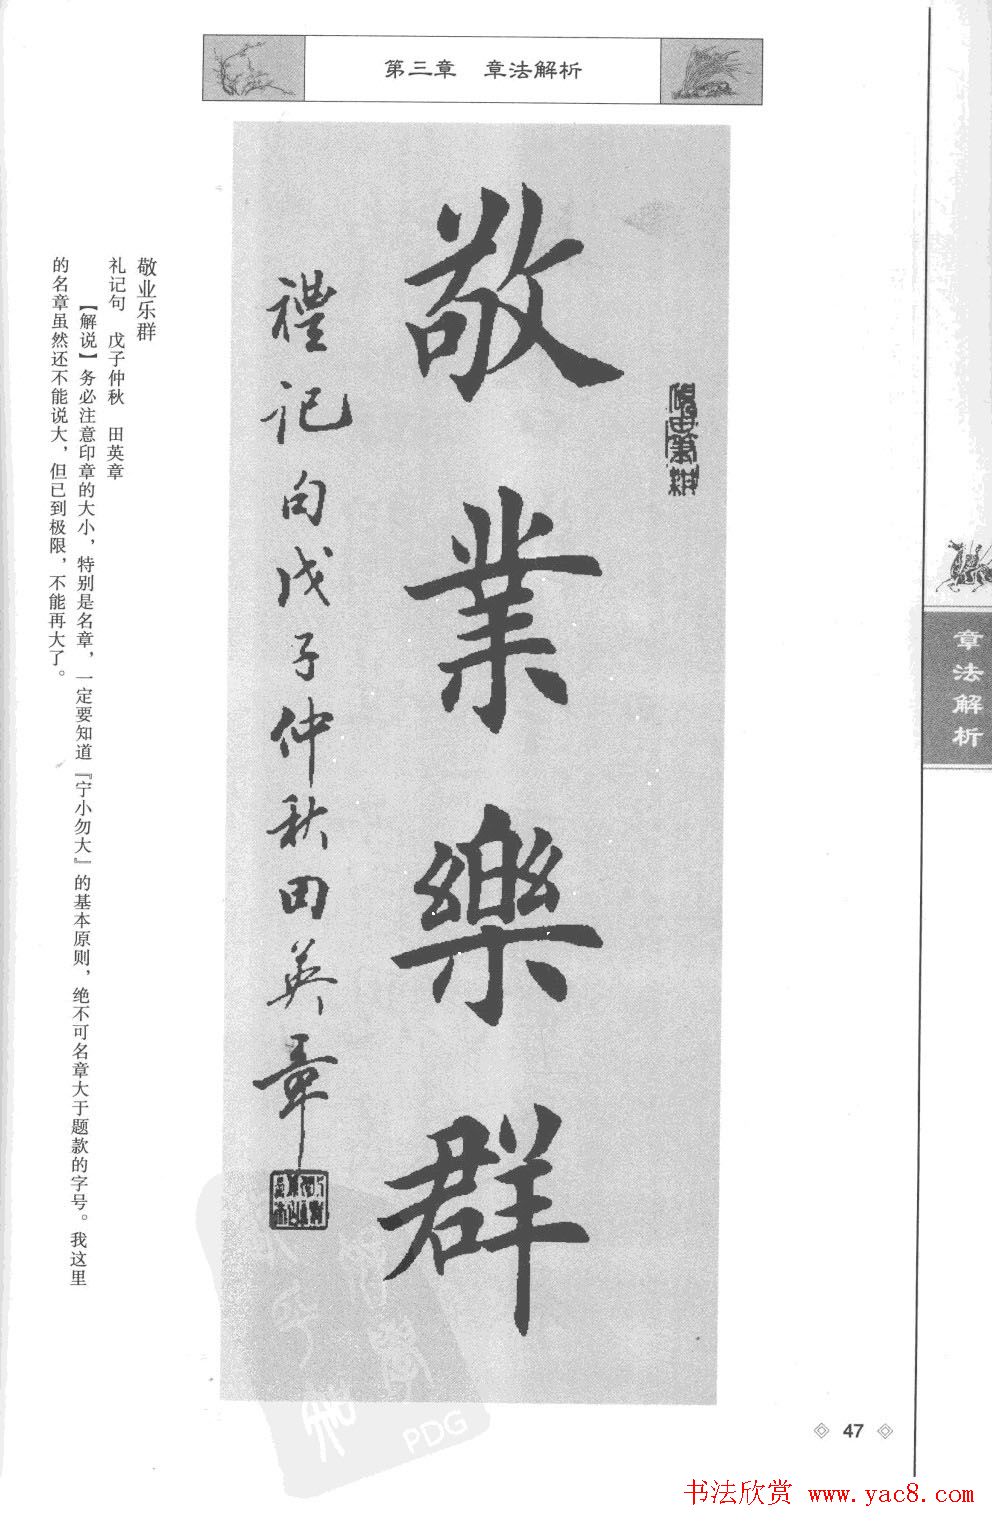 第三章 章法解析
敬業樂群
禮記句戊子仲秋田英章
敬业乐群
礼记句 戊子仲秋 田英章
【解说】务必注意印章的大小，特别是名章，一定要知道『宁小勿大』的基本原则，绝不可名章大于题款的字号。我这里
的名章虽然还不能说大，但已到极限，不能再大了。
章法解析
47
PDG
书法欣赏 www.yac8.com